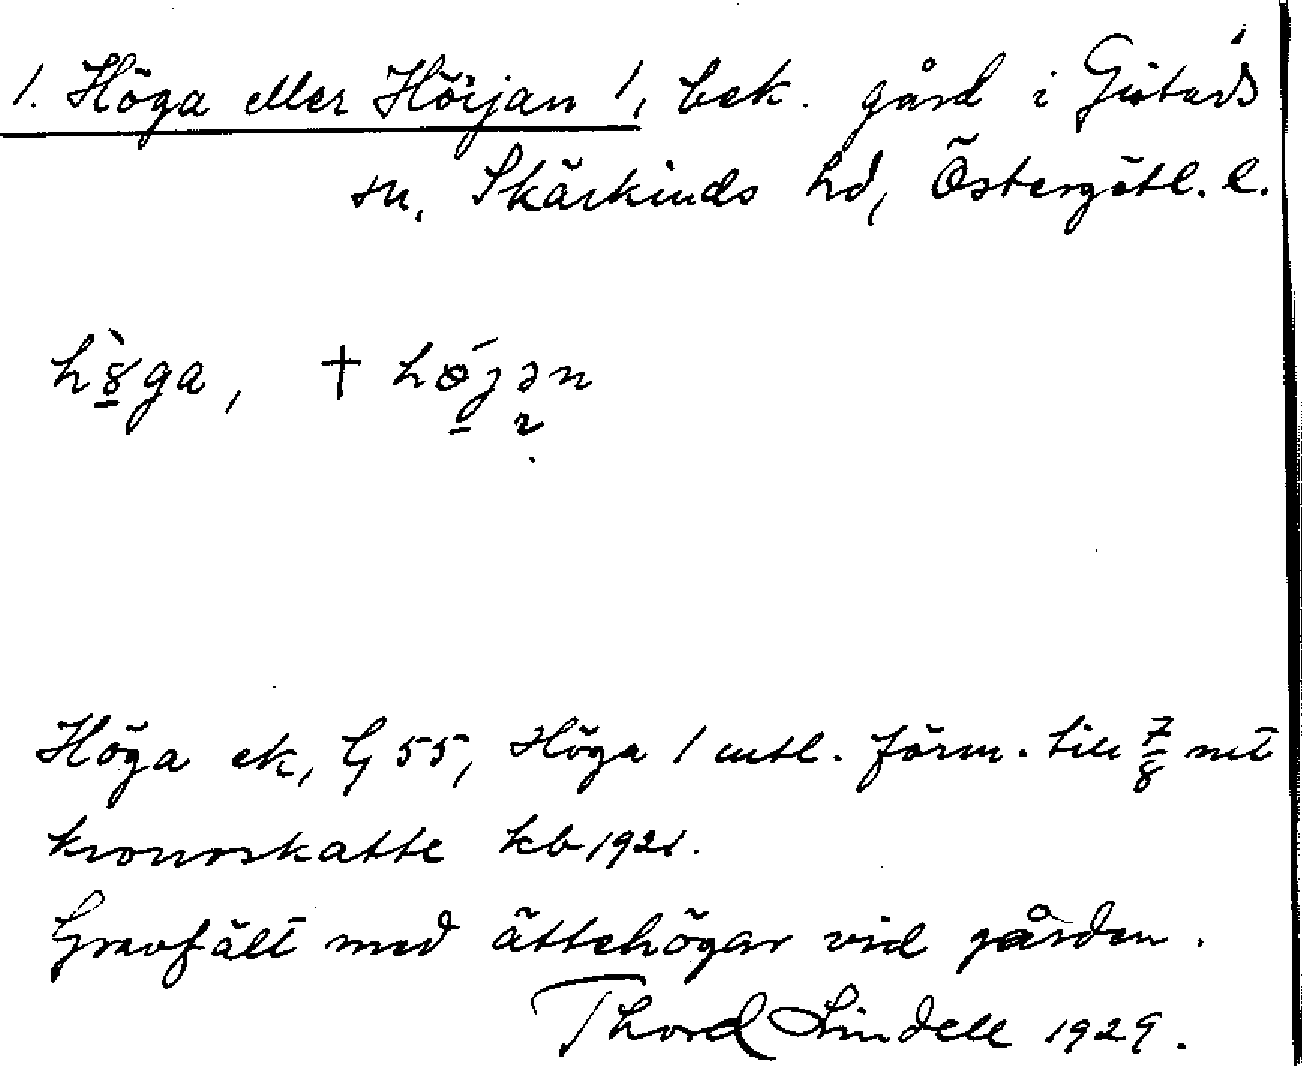 1. Höga eller Höijan 1, bek. gård i Gistads
sn. Skärkinds hd, Östergötl. l.
hö̀ga, † hǿjən
Höga ek, G 55, Höga 1 mtl. förm. till 7/8 mt
kronoskatte kb 1921.
Gravfält med ättehögar vid gården.
Thord Lindell 1929.